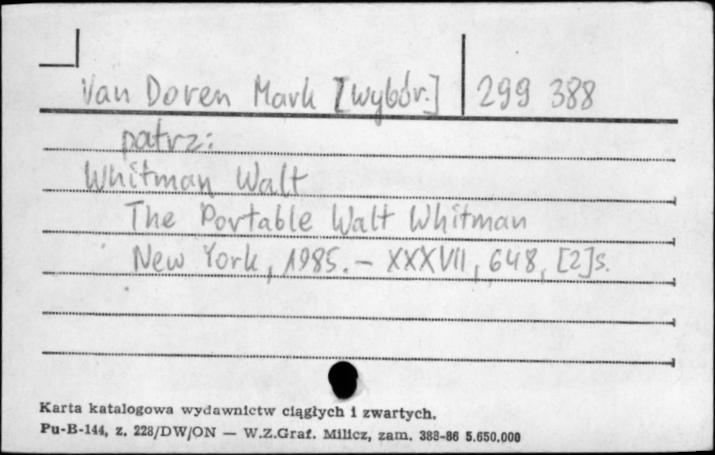 Van Doren Mark [wybór.] 299 388
patrz:
Whitman Walt
The Portable Walt Whitman
New York, 1985. - XXXVII, 648, [2]s.
Karta katalogowa wydawnictw ciągłych i zwartych.
Pu-B-144, z. 228/DW/ON — W.Z.Graf. Milicz, zam. 388-86 5.650.000